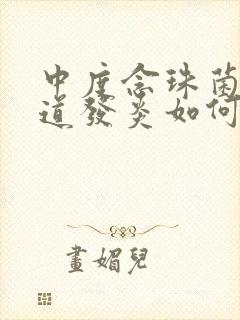 中度念珠菌
道發炎如何
畫媚兒